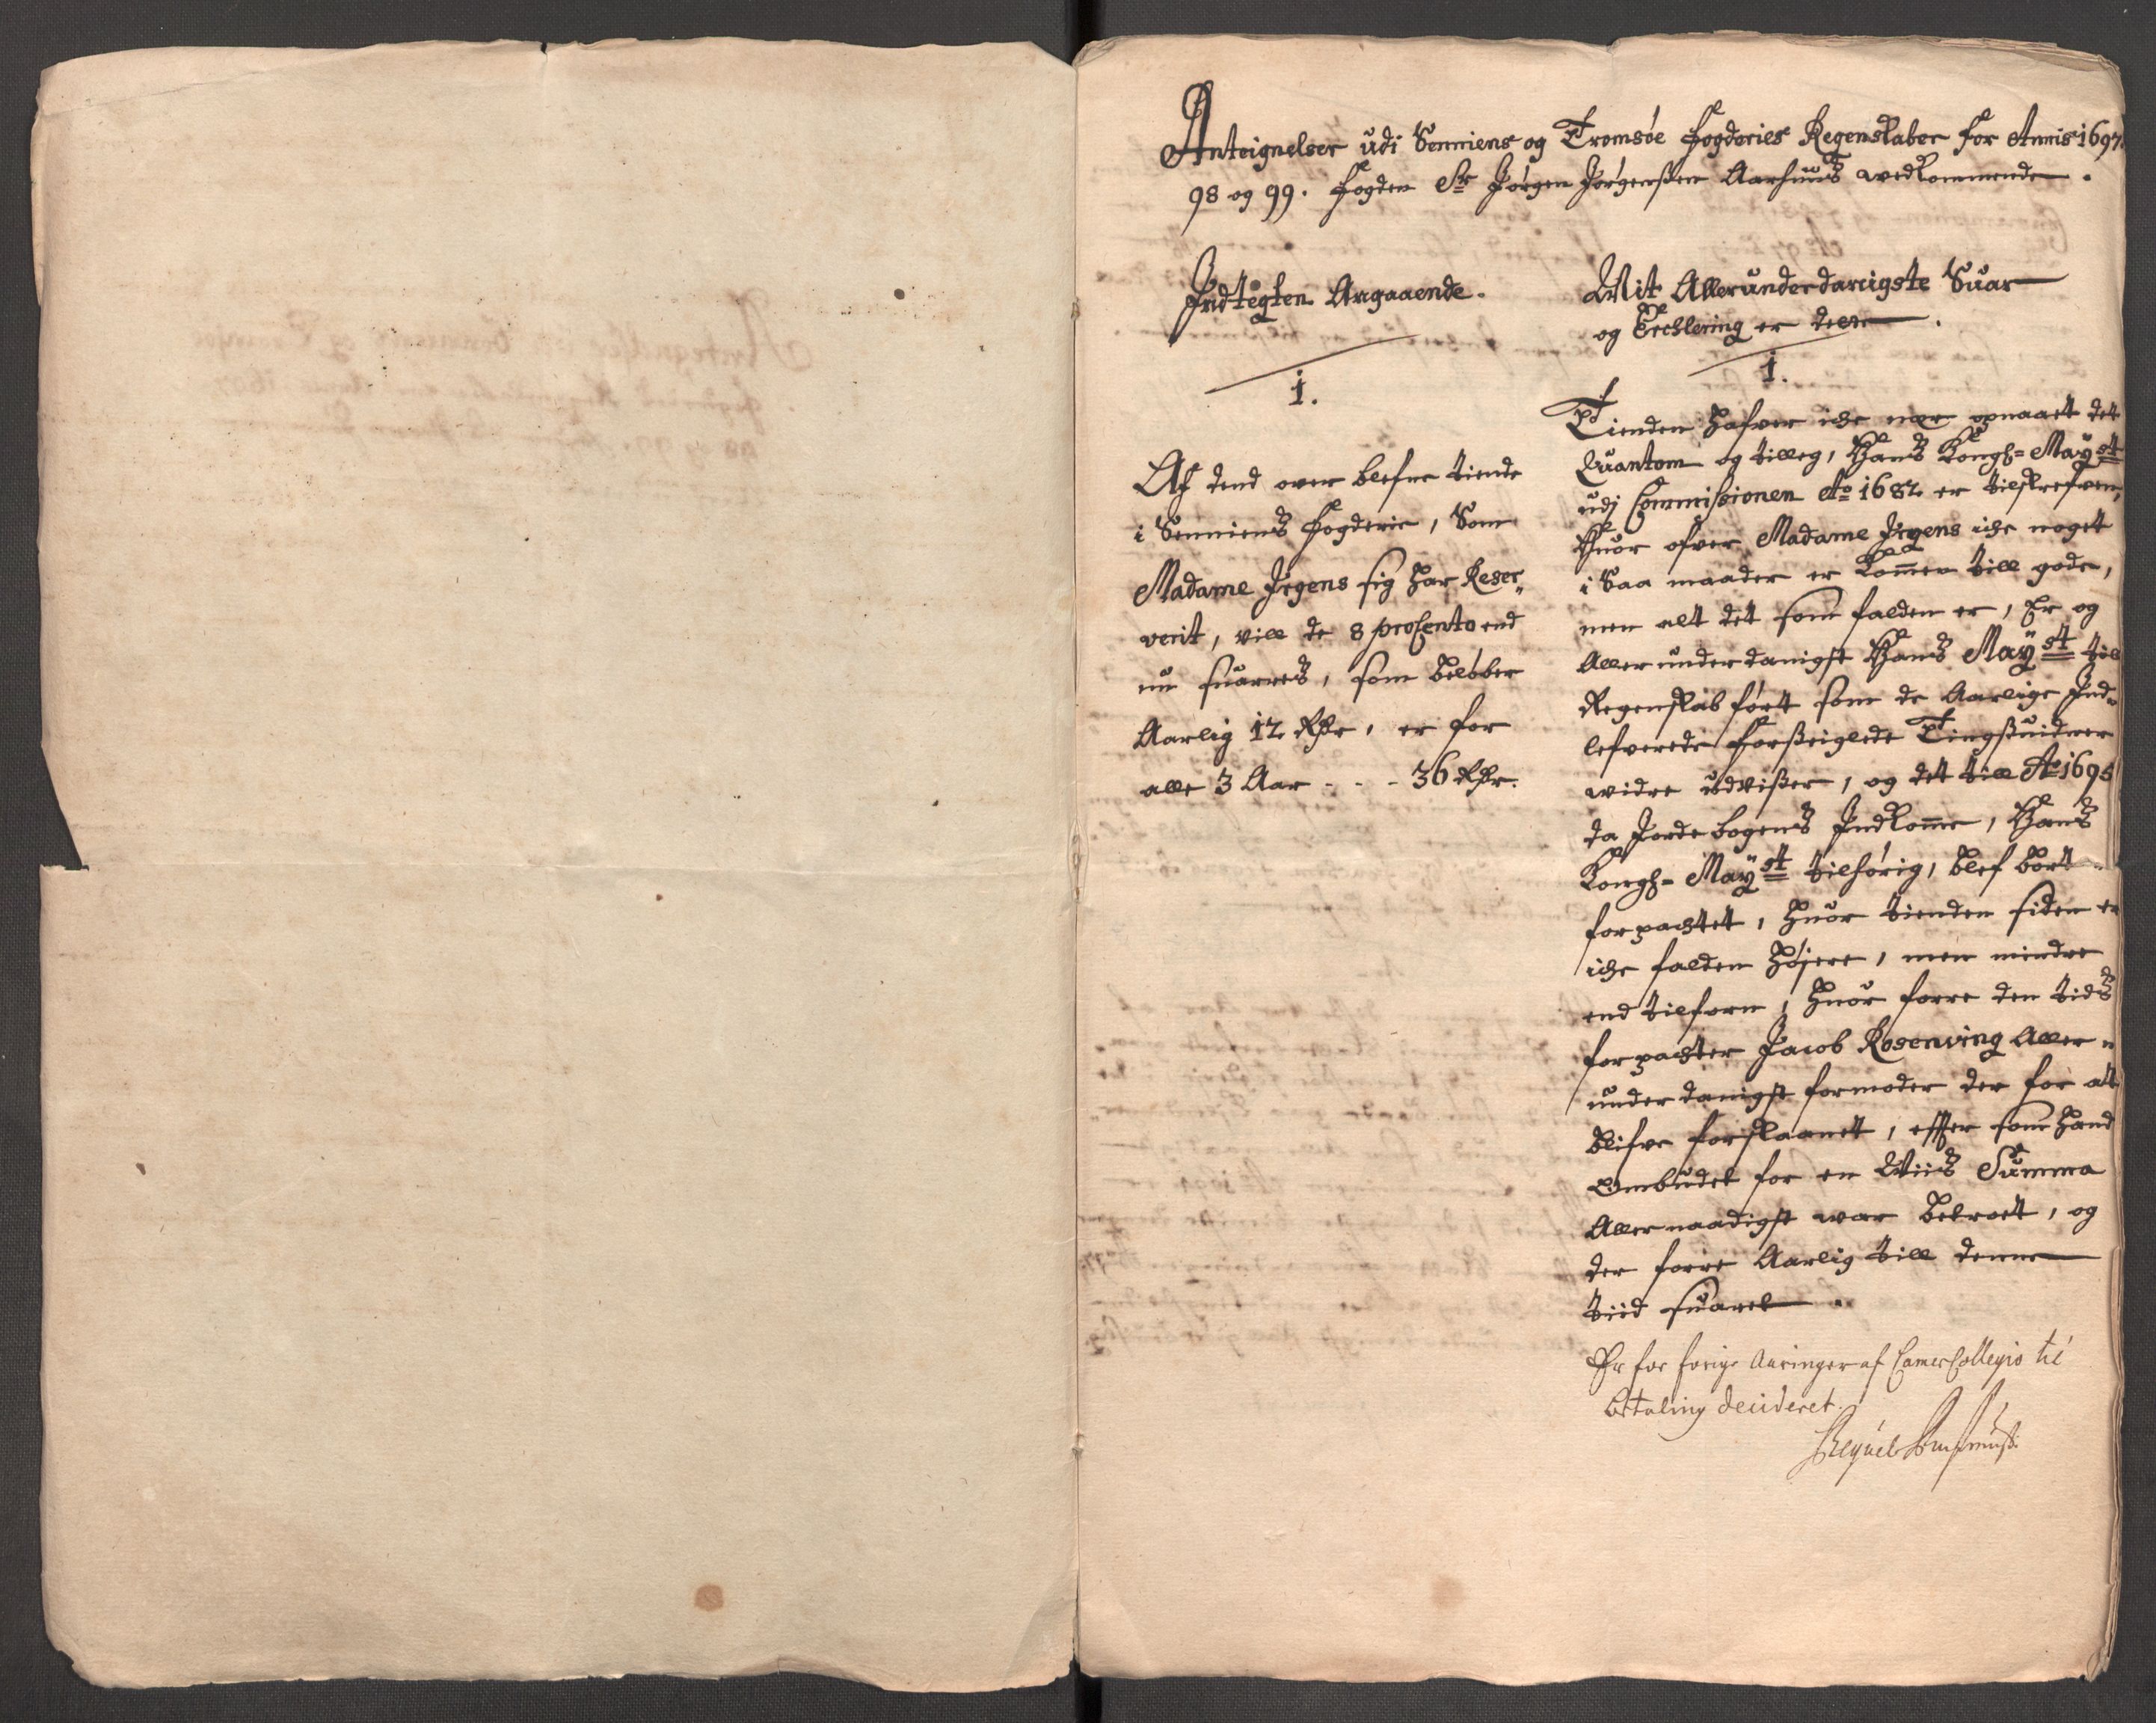 Anteignelser udi Senniens og Tromsöe Fogderies Regenskaber for Annis 1697.
98 og 99. Fogden Sr Jörgen Jörgenßen Aarhuus wedkommende.
Indtegten Angaaende.
1.
Af dend over blefne tiende
i Senniens Fogderie, Som
Madame Irgens sig har Reser„
verit, vill de 8 proCento end
nu suarres, som belöber
Aarlig 12 Rdr, er for
alle 3 Aar - - - 36 Rdr.
Mit Allerunderdanigste Suar
og Erchlering er deer
1.
Tienden hafver iche mer opnaaet det
Quantom og tilleg, Hans Kongl= Mayst
udj Commißionen Ao 1682 er tilskrefven,
Huor ofver Madame Irgens iche noget
i Saa maader er kommen till gode,
men alt det som falden er, Er og
Aller underdanigst Hans Mayst till
Regenskab fört som de Aarlige Ind„
lefverede forßeiglede Tingßuidner
widre udvißer, og det till Ao 1695
da Jordebogens Indkomme, Hans
Kongl= Mayst tilhörig, blef bort„
forpachtet, Huor tienden siden er
iche falden höjere, men mindre
end tilforn, Huor forre den tids
forpachter Jacob Rosenving Aller„
underdanigst formoder der for att
blifve forskaanet, efter som hand
Ombudet for en Wiis Summa
Allernaadigst war betroet, og
der forre Aarlig till denne
tiid suaret.
Er for forige Aaringer af CamerCollegio til
betaling decideret.